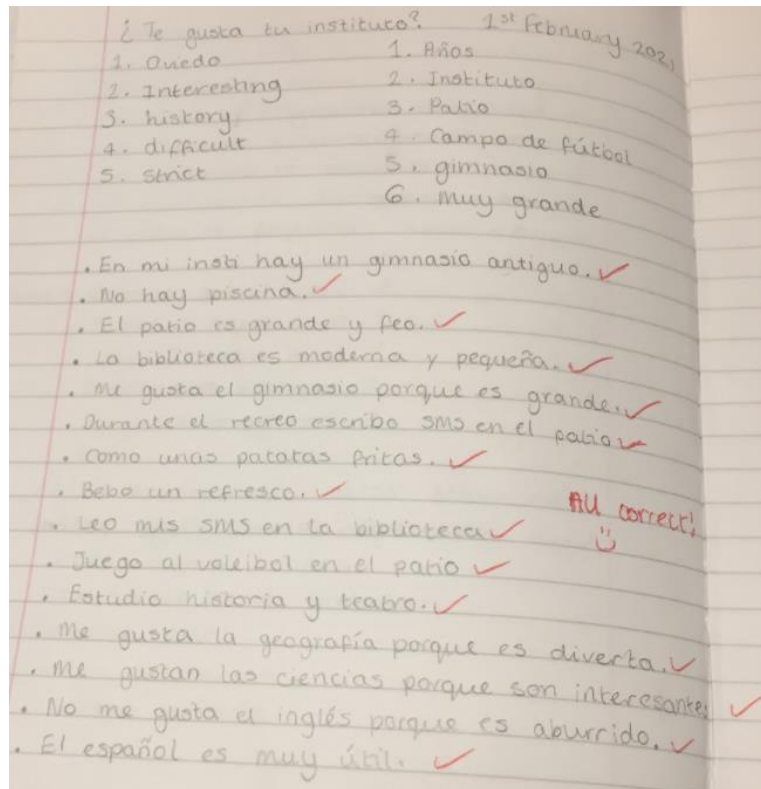 ¿Te gusta tu instituto? 1st February 2021
1. Oviedo 1. Años
2. Interesting 2. Instituto
3. history 3. Patio
4. difficult 4. Campo de fútbol
5. strict 5. gimnasio
6. muy grande
. En mi insti hay un gimnasio antiguo. ✓
. No hay piscina. ✓
. El patio es grande y feo. ✓
. La biblioteca es moderna y pequeña. ✓
. Me gusta el gimnasio porque es grande. ✓
. Durante el recreo escribo SMS en el patio ✓
. Como unas patatas fritas. ✓
. Bebo un refresco. ✓
All correct!
. Leo mis SMS en la biblioteca ✓
. Juego al voleibol en el patio ✓
. Estudio historia y teatro. ✓
. Me gusta la geografía porque es diverta. ✓
. Me gustan las ciencias porque son interesantes ✓
. No me gusta el inglés porque es aburrido. ✓
. El español es muy útil. ✓